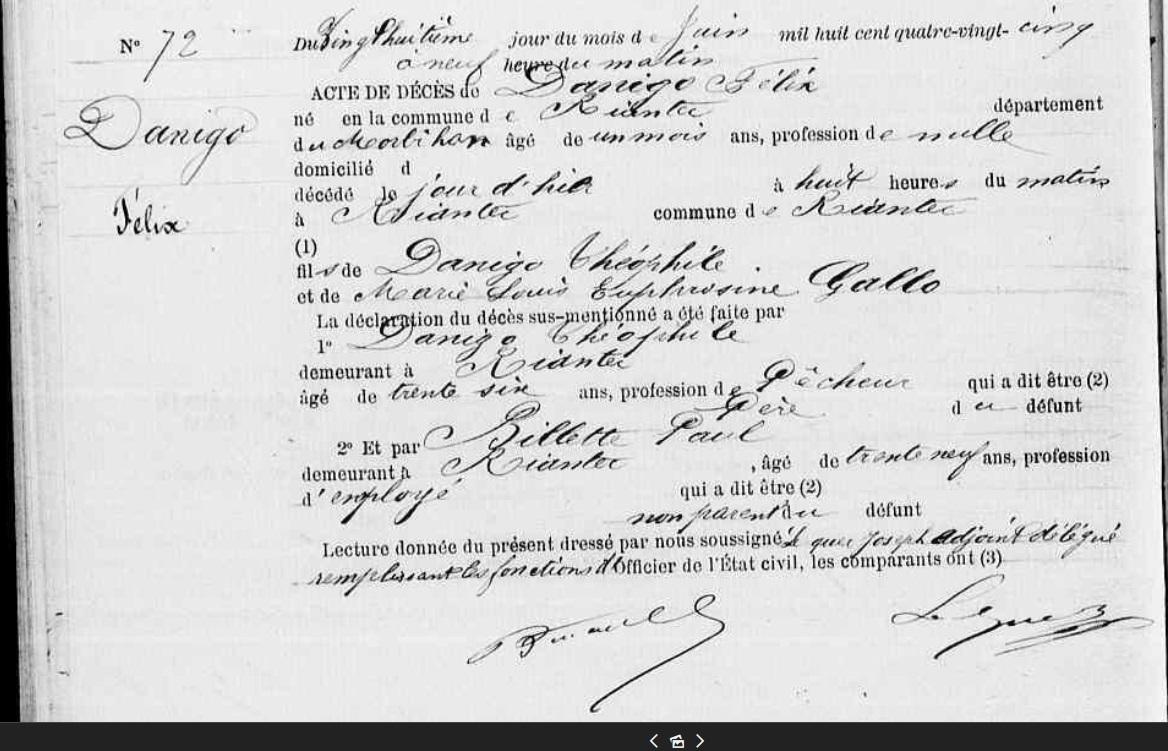 N° 72
Du Vingt huitième jour du mois de Juin mil huit cent quatre-vingt- cinq
a neuf heure du matin
ACTE DE DÉCÈS de Danigo Félix
Danigo
Félix
né en la commune de Riantec département
du Morbihan âgé de un mois ans, profession de nulle
domicilié d
décédé le jour d'hier à huit heures du matin
à Riantec commune de Riantec
(1)
fils de Danigo Théophile
et de Marie Louis Euphrosine Gallo
La déclaration du décès sus-mentionné a été faite par
1° Danigo Théophile
demeurant à Riantec
âgé de trente six ans, profession de Pêcheur qui a dit être (2)
Père du défunt
2° Et par Billette Paul
demeurant à Riantec, âgé de trente neuf ans, profession
d'employé qui a dit être (2)
non parent du défunt
Lecture donnée du présent dressé par nous soussigné Joseph adjoint délégué
remplissant les fonctions d'Officier de l'État civil, les comparants ont (3)